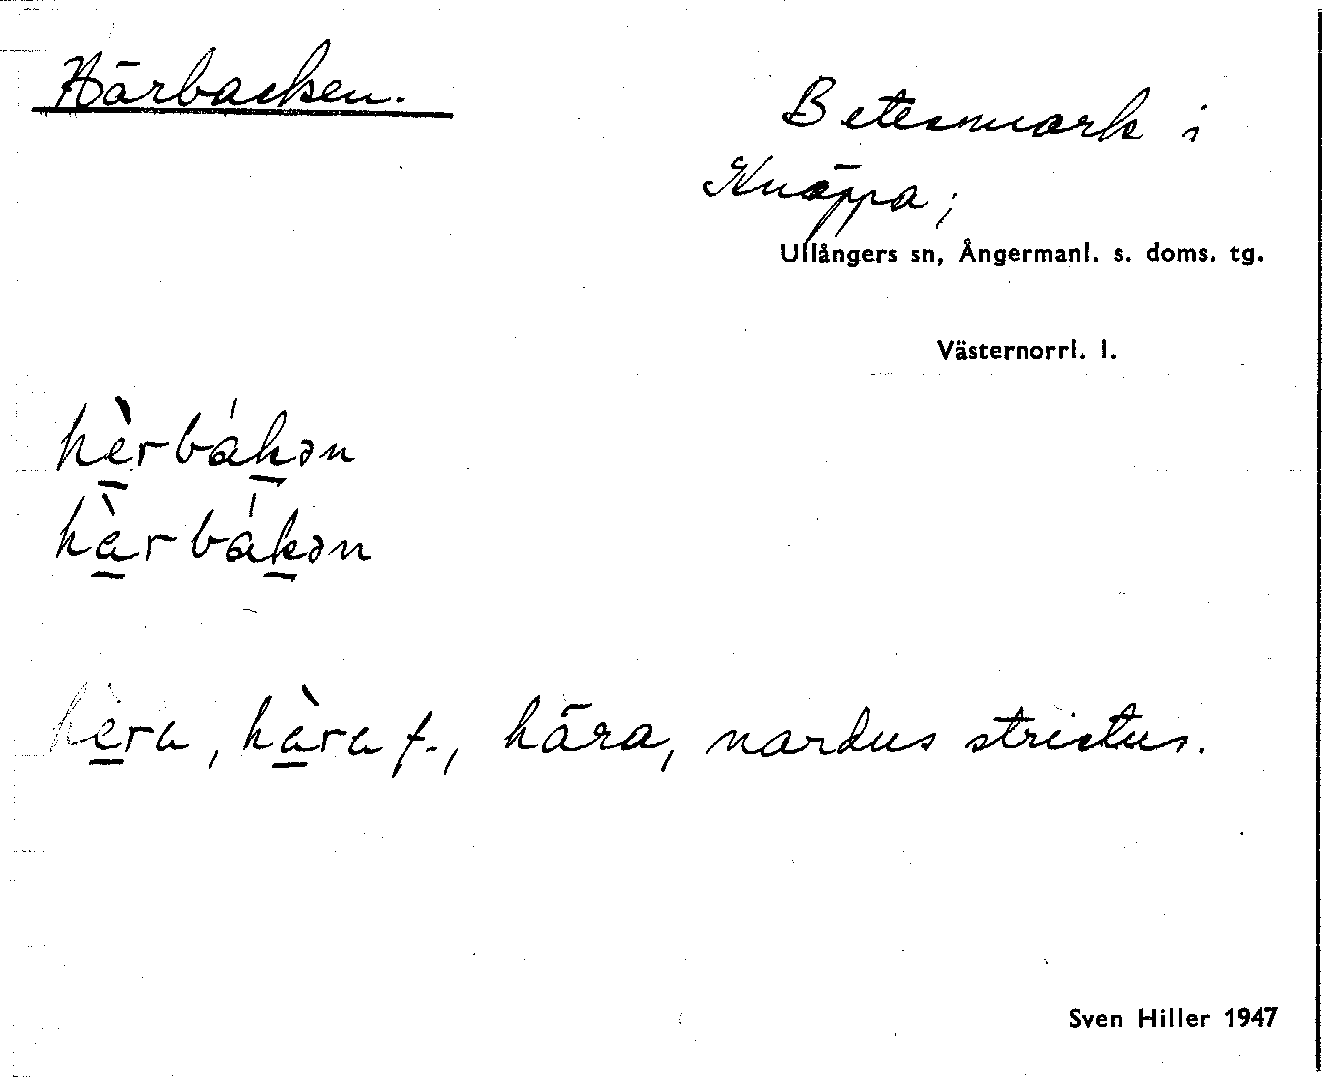 Härbacken.
Betesmark i
Knäppa;
Ullångers sn, Ångermanl. s. doms. tg.
Västernorrl. l.
hèrbákən
hàrbákən
hèra, hàra f., hära, nardus strictus.
Sven Hiller 1947